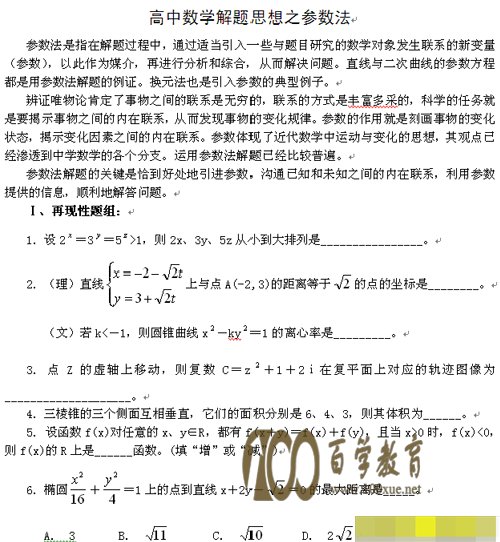 高中数学解题思想之参数法
参数法是指在解题过程中，通过适当引入一些与题目研究的数学对象发生联系的新变量
（参数），以此作为媒介，再进行分析和综合，从而解决问题。直线与二次曲线的参数方程
都是用参数法解题的例证。换元法也是引入参数的典型例子。
辨证唯物论肯定了事物之间的联系是无穷的，联系的方式是丰富多采的，科学的任务就
是要揭示事物之间的内在联系，从而发现事物的变化规律。参数的作用就是刻画事物的变化
状态，揭示变化因素之间的内在联系。参数体现了近代数学中运动与变化的思想，其观点已
经渗透到中学数学的各个分支。运用参数法解题已经比较普遍。
参数法解题的关键是恰到好处地引进参数，沟通已知和未知之间的内在联系，利用参数
提供的信息，顺利地解答问题。
Ⅰ、再现性题组：
1. 设 2^x＝3^y＝5^z>1，则 2x、3y、5z 从小到大排列是________________。
2. （理）直线{x=-2-√2t y=3+√2t 上与点 A(-2,3)的距离等于√2 的点的坐标是________。
（文）若 k<－1，则圆锥曲线 x²－ky²＝1 的离心率是_________。
3. 点 Z 的虚轴上移动，则复数 C＝z²＋1＋2i 在复平面上对应的轨迹图像为
____________________。
4. 三棱锥的三个侧面互相垂直，它们的面积分别是 6、4、3，则其体积为______。
5. 设函数 f(x)对任意的 x、y∈R，都有 f(x＋y)＝f(x)＋f(y)，且当 x>0 时，f(x)<0，
则 f(x)的 R 上是______函数。(填“增”或“减”)
6. 椭圆 x²/16＋y²/4＝1 上的点到直线 x＋2y－√2＝0 的最大距离是_____。
A. 3 B. √11 C. √10 D. 2√2
百学教育